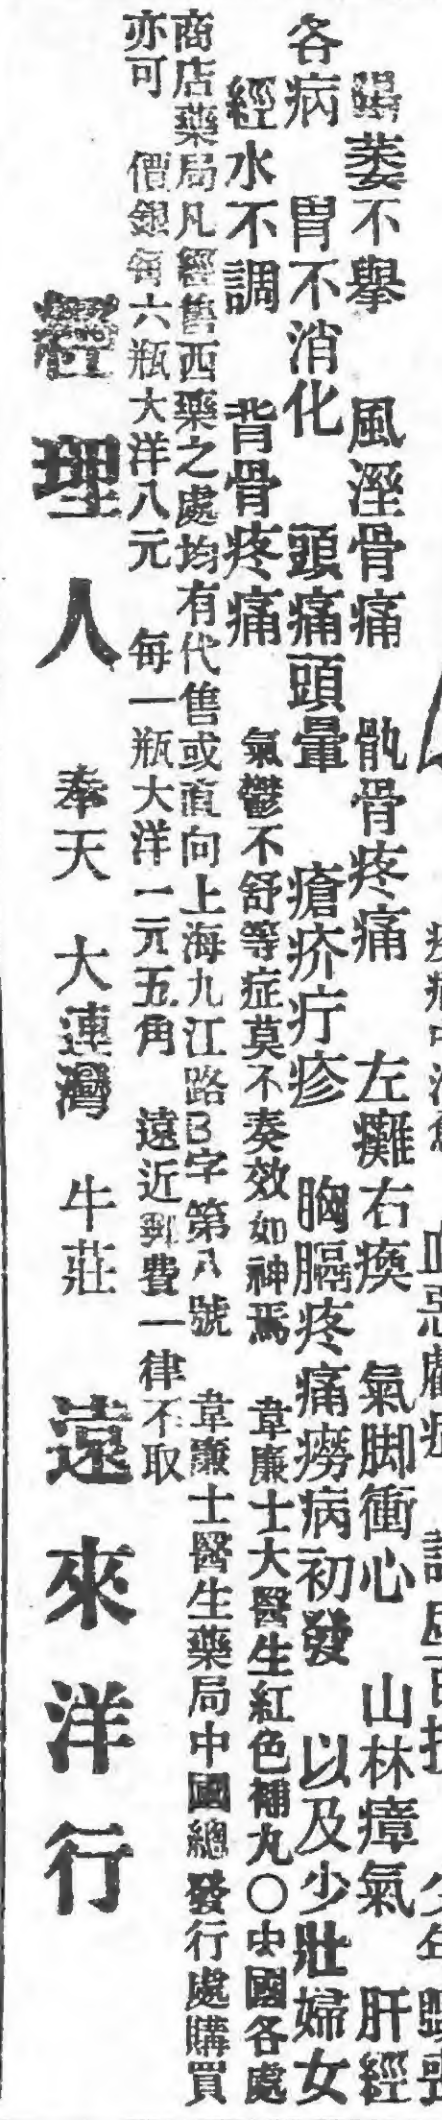 陽萎不擧　風溼骨痛　骪骨疼痛　左癱右瘓　氣脚衝心　山林瘴氣　肝經
各病　胃不消化　頭痛頭暈　瘡疥疔疹　胸膈疼痛癆病初發　以及少壯婦女
經水不調　背骨疼痛　氣鬱不舒等症莫不奏效如神焉　韋廉士大醫生紅色補丸〇中國各處
商店藥局凡經售西藥之處均有代售或直向上海九江路B字第八號　韋廉士醫生藥局中國總發行處購買
亦可　價銀每六瓶大洋八元　每一瓶大洋一元五角　遠近郵費一律不取
經理人　奉天　大連灣　牛莊　遠來洋行